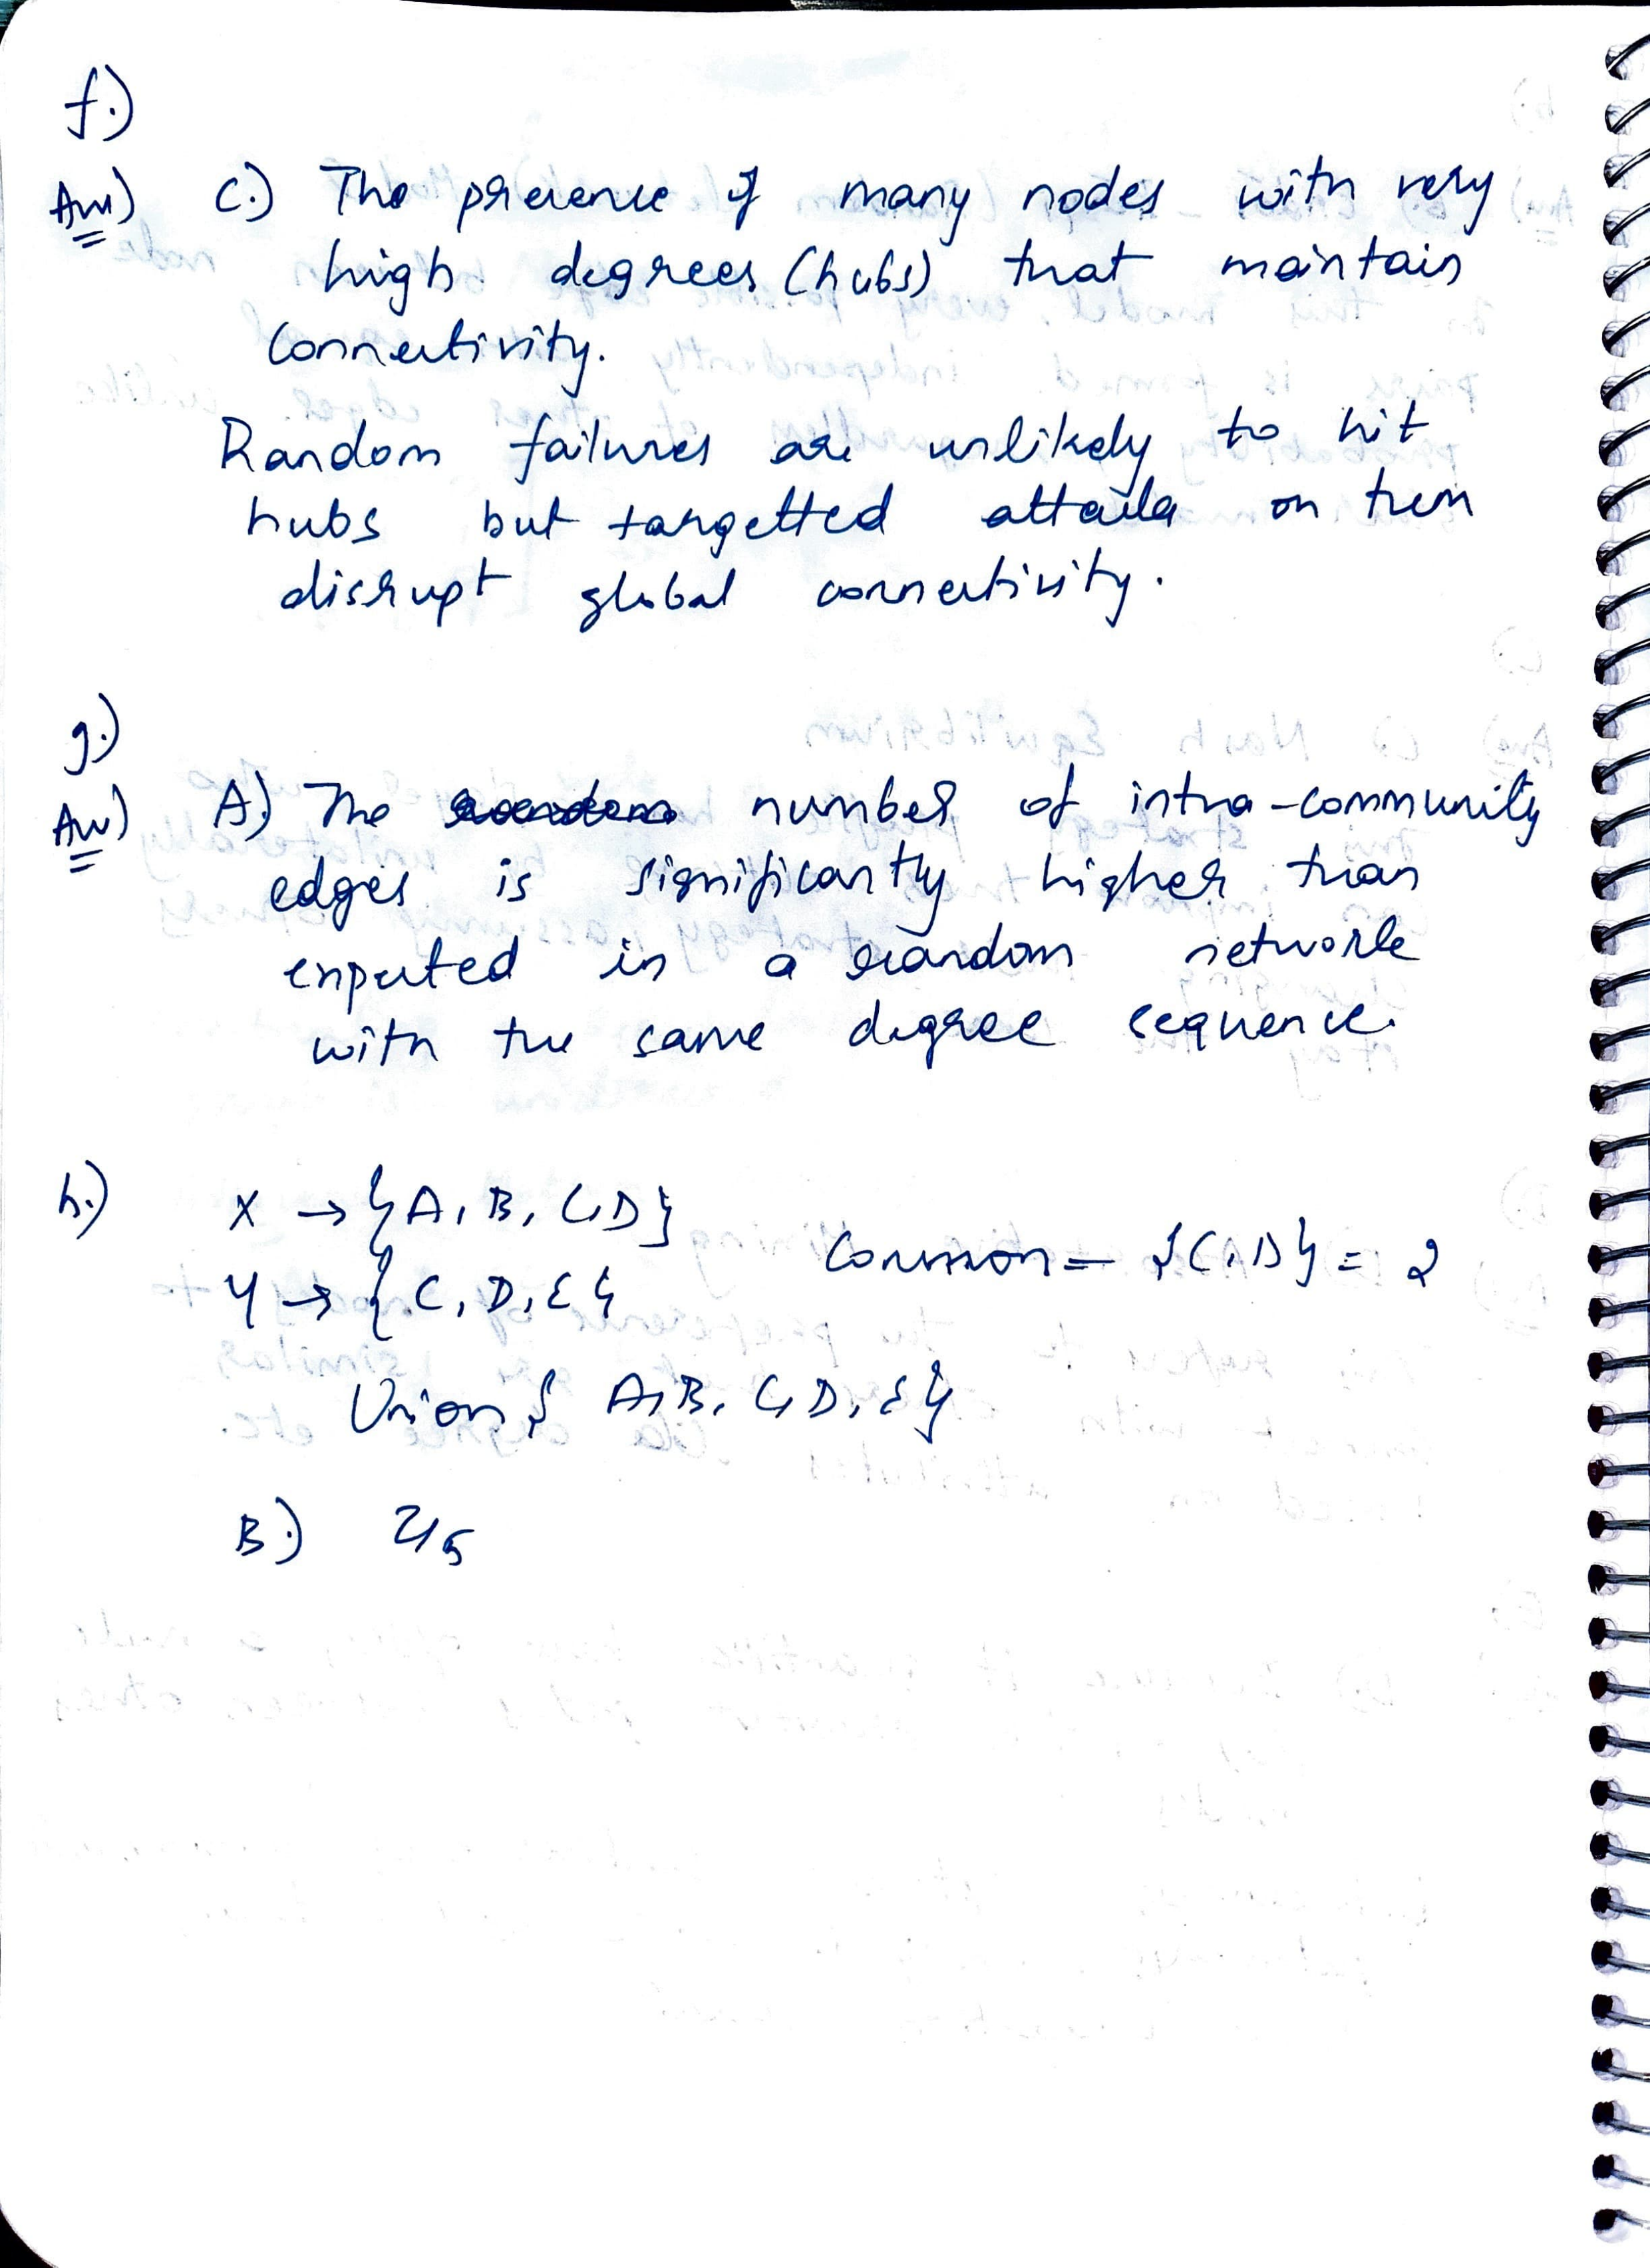 f.)
Ans) C.) The presence of many nodes with very
high degrees (hubs) that maintain
connectivity.
Random failures are unlikely to hit
hubs but targetted attacks on them
disrupt global connectivity.
g.)
Ans) A.) The number of intra-community
edges is significantly higher than
expected in a random network
with the same degree sequence.
h.) X → {A, B, C, D}
Common = {C, D} = 2
Y → {C, D, E}
Union { A, B, C, D, E}
B.) 2/5